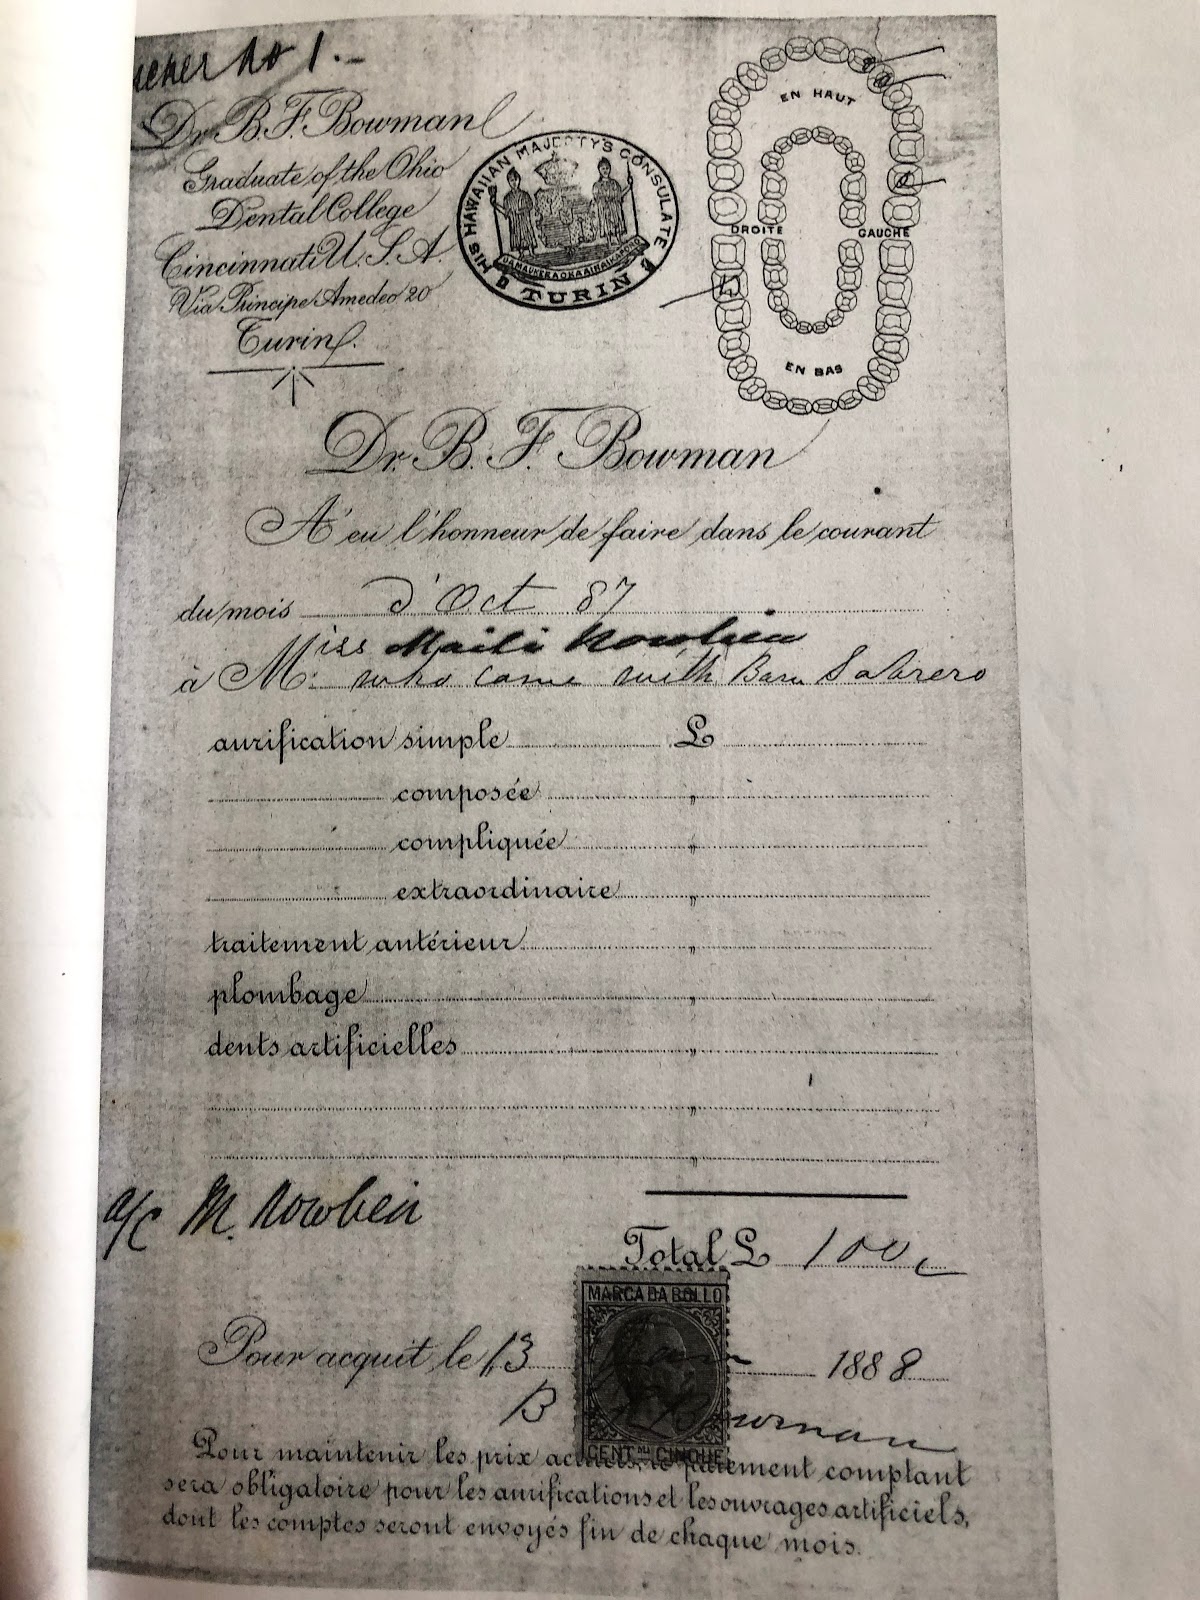 No 1.-
Dr. B. F. Bowman
Graduate of the Ohio
Dental College
Cincinnati U. S. A.
Via Principe Amedeo 20
Turin.
HIS HAWAIIAN MAJESTY'S CONSULATE
TURIN
EN HAUT
DROITE GAUCHE
EN BAS
Dr. B. F. Bowman
A eu l'honneur de faire dans le courant
du mois d'Oct 87
Miss Maili Nowlein
à M: who came with Baru Sobrero
aurification simple £
composée "
compliquée "
extraordinaire "
traitement antérieur "
plombage "
dents artificielles "
"
"
a/c M. Nowlein
Total £ 100
MARCA DA BOLLO
Pour acquit le 13 1888
B Bowman
CENT. CINQUE
Pour maintenir les prix actuels, le paiement comptant
sera obligatoire pour les aurifications et les ouvrages artificiels,
dont les comptes seront envoyés fin de chaque mois.